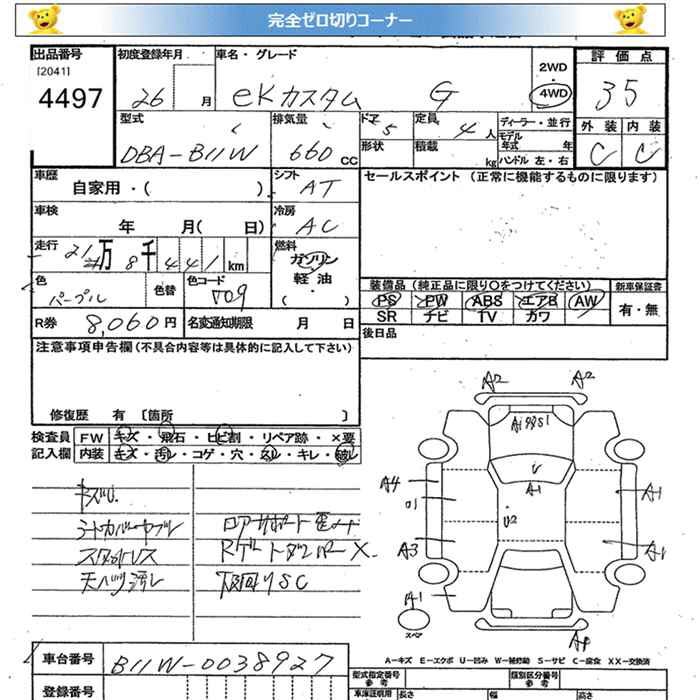 完全ゼロ切りコーナー
出品番号
[2041]
4497
初度登録年月
26 月
車名・グレード
eKカスタム G
2WD
・
4WD
評価点
35
外装 内装
C C
型式
DBA-B11W
排気量
660 CC
ドア
5
定員
4 人
形状
積載
kg
ディーラー・並行
モデル年式 年
ハンドル 左・右
車歴
自家用・( )
シフト
AT
セールスポイント (正常に機能するものに限ります)
車検
年 月( 日)
冷房
AC
走行
21万 8千 441 km
燃料
ガソリン
軽油
色
パープル
色替
色コード
T09
装備品(純正品に限り○をつけてください)
PS PW ABS エアB AW
SR ナビ TV カワ
新車保証書
有・無
R券 8,060円
名変通知期限 月 日
後日品
注意事項申告欄(不具合内容等は具体的に記入して下さい)
修復歴 有 〔箇所 〕
検査員
記入欄
FW キズ・飛石・ヒビ割・リペア跡・×要
内装 キズ・汚レ・コゲ・穴・スレ・キレ・破レ
キズU
シートカバーヤブレ
スタッドレス
天ハツ汚レ
Rゲートダンパー×
下回りSC
A2 A2
A1
A1
U2
A4
A3
A1
A1
A1
スペア
車台番号 B11W-0038927
登録番号
A-キズ E-エクボ U-凹み W-補修跡 S-サビ C-腐食 XX-交換済
型式指定番号
参考
類別区分番号
参考
車庫証明用 長さ 幅 高さ